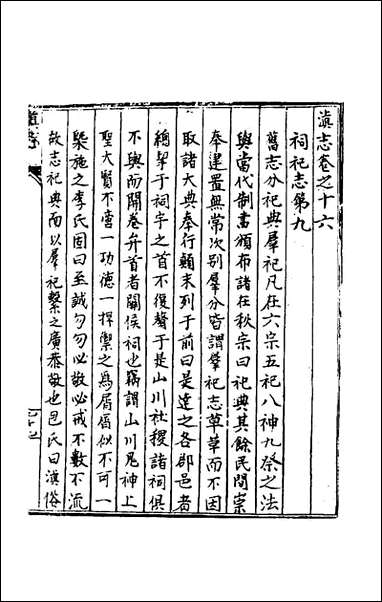 滇志卷之十六
祠祀志第九
舊志分祀典羣祀凡在六宗五祀八神九祭之法
與當代制書頒布諸在秩宗曰祀典其餘民間崇
奉建置無常次別羣分皆謂羣祀志草草而不因
取諸大典奉行顛末列于前曰是達之各郡邑者
總挈于祠字之首不復聱于是山川社稷諸祠俱
不與而開卷弁首者關侯祠也竊謂山川鬼神上
聖大賢不啻一功德一捍禦之爲屑屑似不可一
槩施之李氏固曰至誠勿勿必敬必戒不數不流
故志祀典而以羣祀繫之廣恭敬也包氏曰滇俗